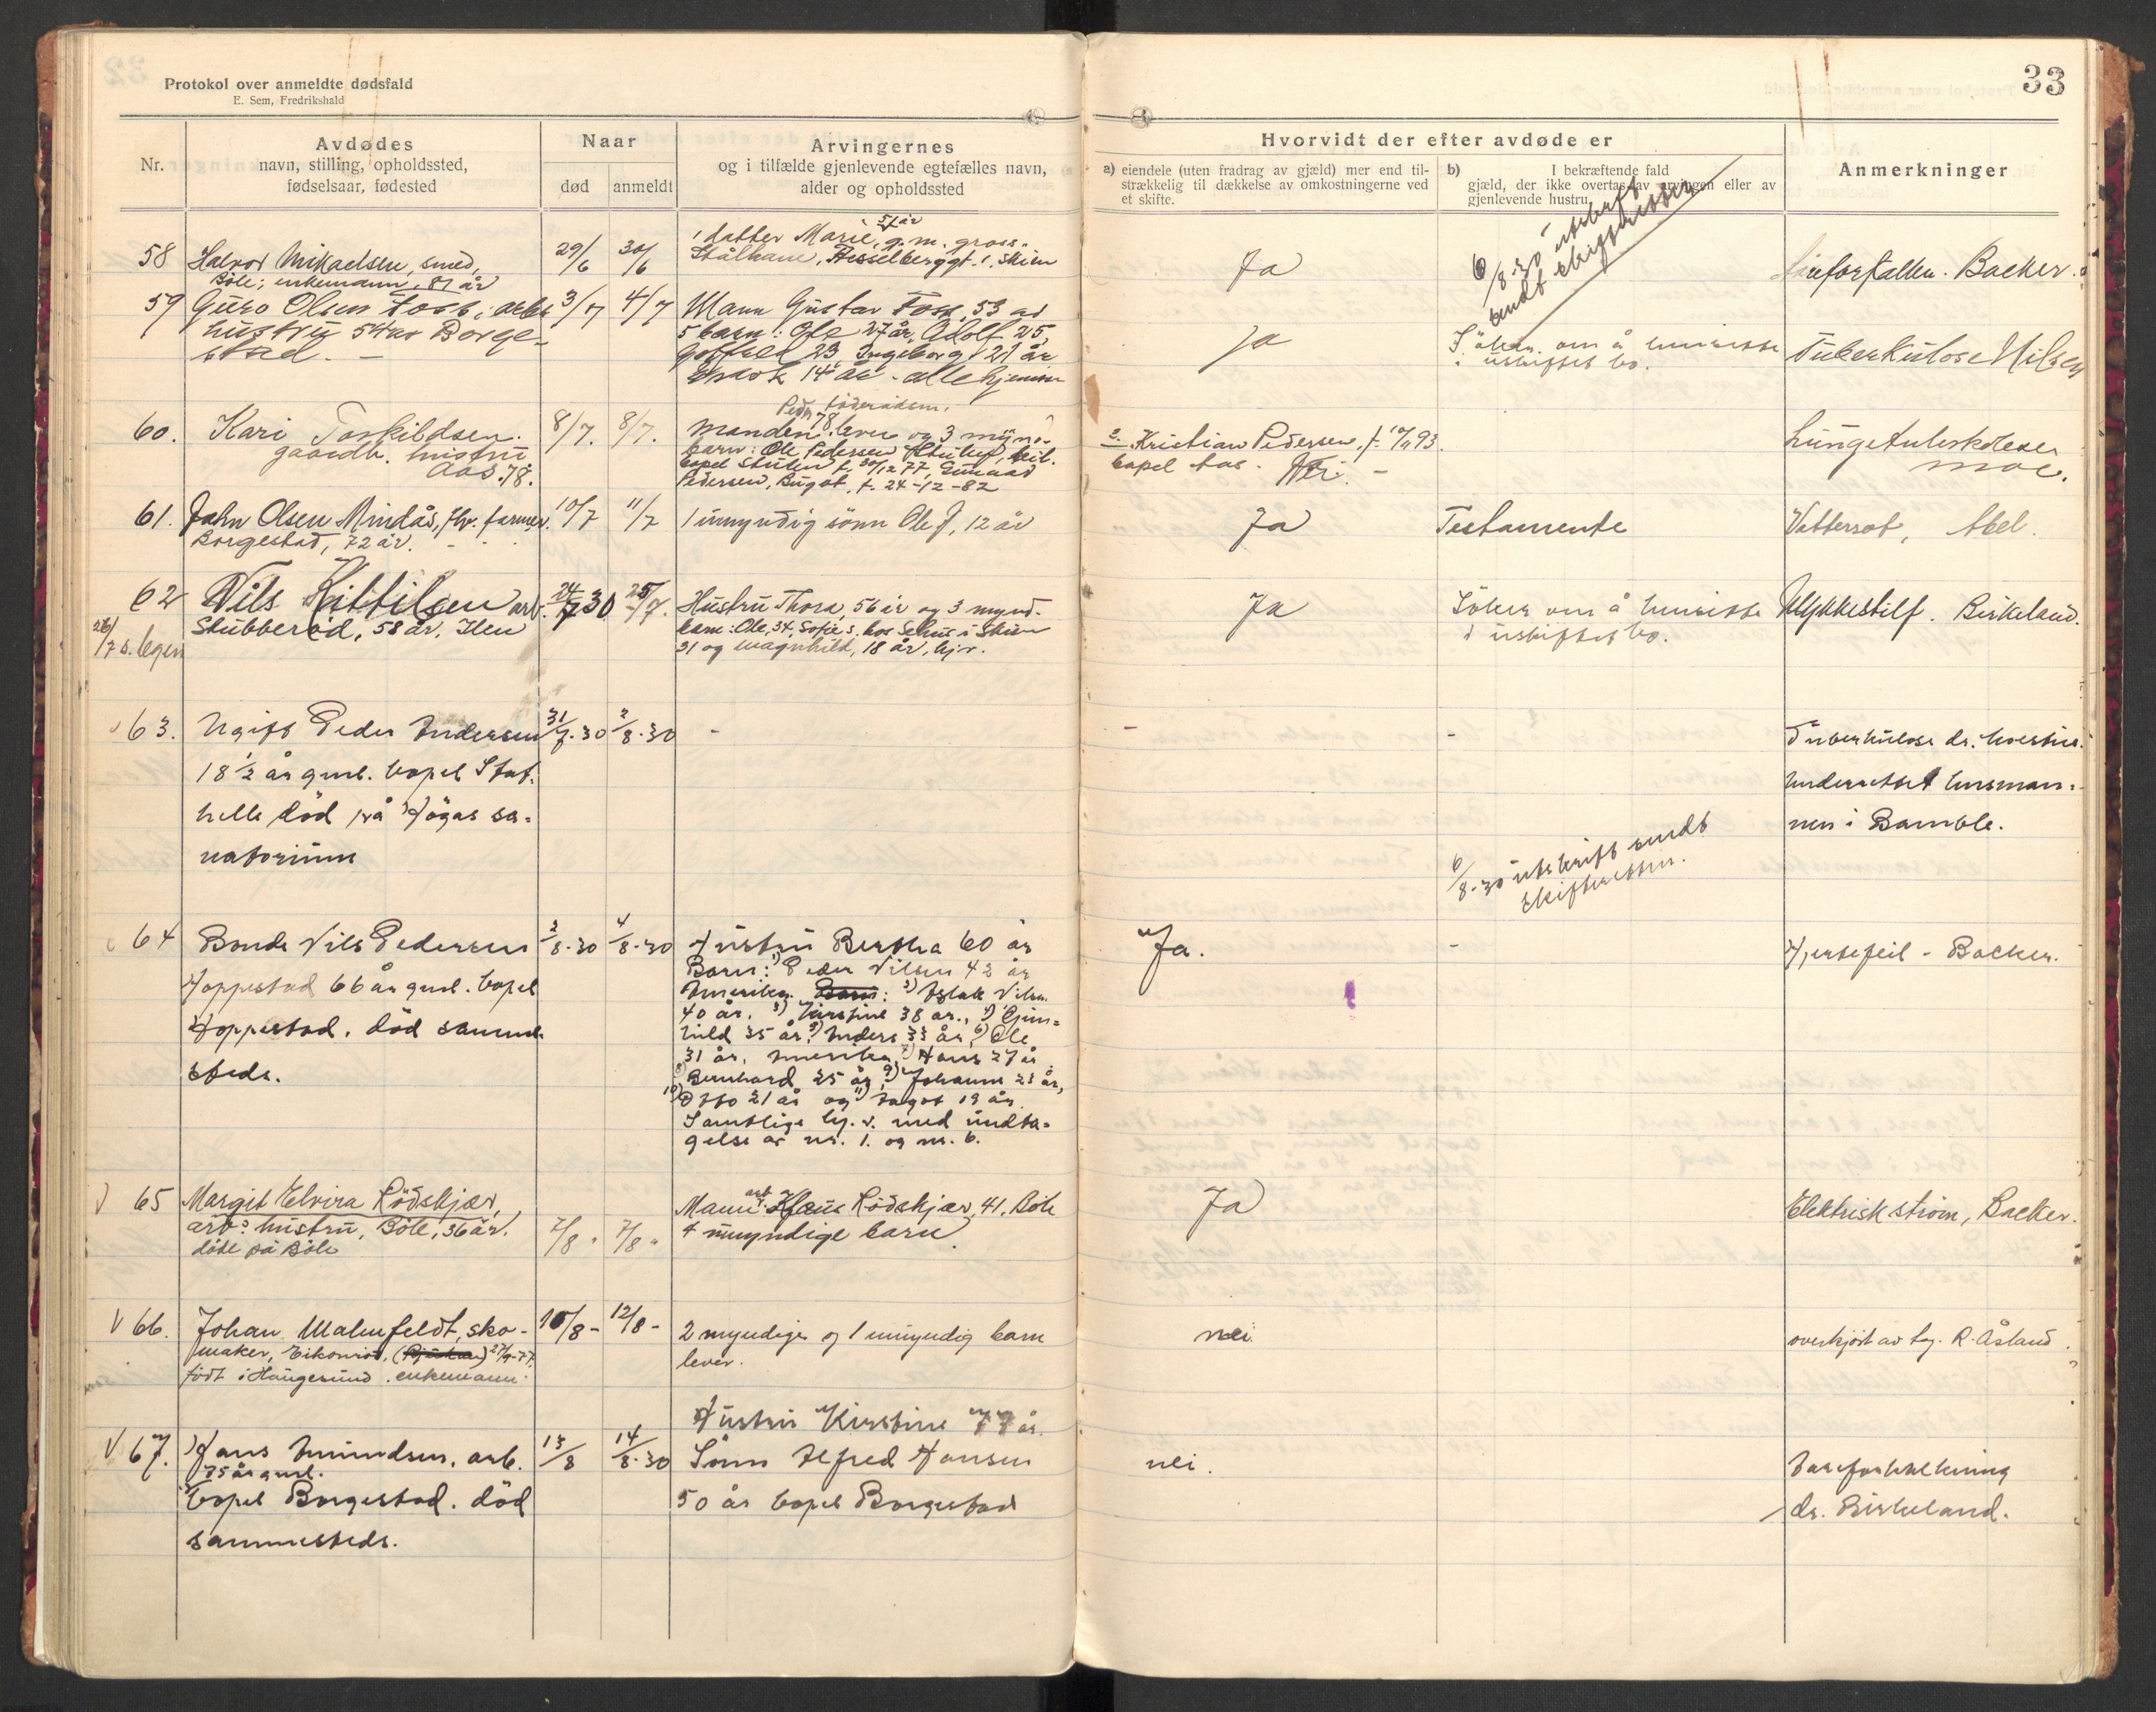 Protokol over anmeldte dødsfald
E. Sem, Fredrikshald
33
Nr.
Avdødes
navn, stilling, opholdssted,
fødselsaar, fødested
Naar
død
anmeldt
Arvingernes
og i tilfælde gjenlevende egtefælles navn,
alder og opholdssted
Hvorvidt der efter avdøde er
a) eiendele (uten fradrag av gjæld) mer end til-
strækkelig til dækkelse av omkostningerne ved
et skifte.
b) I bekræftende fald
gjæld, der ikke overtas av arvingen eller av
gjenlevende hustru
Anmerkninger
58
Halvor Mikaelsen, smed,
Böle; enkemann, 87 år
29/6
30/6
1 datter Marie, 57 år g.m. gross.
Stålhane, Hesselberggt. 1, Skien
Ja
6/8-30 utskrift
sendt skifteretten
Bacher.
59
Guro Olsen Foss, arb.
hustru 54 år Borge-
stad. -
3/7
4/7
Mann Gustav Foss, 53 år
5 barn: Ole 27 år, Adolf 25,
Gotfred 23, Ingeborg 21 år
14 år - alle hjemme
Ja
Söker om å hensitte
i uskiftet bo.
Tuberkulose Nilsen
60.
Kari Torkildsen.
gaardb. hustru
Aas. 78.
8/7.
8/7.
Peder föderådsm.
Manden 78. lever og 3 mynd.
barn: Ole Pedersen
bopel Skulen f. 30/12 77, Gunnar
Pedersen, f. 24-12-82
3. Kristian Pedersen, f. 10/11 93.
bopel Aas. Nei. -
Lungetuberkulose
Moe.
61.
John Olsen Mindås, fhv. farmer.
Borgestad, 72 år. -
10/7
11/7
1 umyndig sönn Ole J, 12 år
Ja
Testamente
Vattersot, Abel.
62
Nils Kittilsen arb.
Stubberød, 58 år, Ilen
26/7 s. legen
24/7 30
25/7.
Hustru Thora, 56 år og 3 mynd.
barn: Ole, 34, Sofie s. hos Sehus i Skien
31 og Magnhild, 18 år, hjv.
Ja
Söker om å hensitte
i uskiftet bo.
Ulykkestilf. Birkeland.
63.
Ugift Peder Andersen
18 1/2 år gml. bopel Stat-
helle död på Högås sa-
natorium
31/7-30
2/8-30
-
-
-
Tuberkulose dr.
Underrettet lensman-
nen i Bamble.
6/8-30 utskrift sendt
skifteretten.
64
Bonde Nils Pedersen
Hoppestad 66 år gml. bopel
Hoppestad. död samme-
steds.
3/8-30
4/8-30
Hustru Bertha 60 år
Barn: 1) Peder Nilsen 42 år
Amerika. Barn: 2) Aslak Nilsen
40 år. 3) Kirstine 38 år., 4) Gun-
hild 35 år. 5) Anders 33 år, 6) Ole
31 år. Amerika, 7) Hans 27 år
8) Bernhard 25 år, 9) Johanne 23 år,
10) Otto 21 år og 11) Aagot 19 år
Samtlige hj.v. med undta-
gelse av nr. 1. og nr. 6.
Ja.
-
Hjertefeil - Backer.
65
Margit Elvira Rödskjær,
arb.s hustru, Böle, 36 år.
döde på Böle
7/8
7/8
Mann: arb. Klaus Rödskjær, 41, Böle
4 umyndige barn
Ja
Elektrisk ström, Backer.
V 66.
Johan Malmfeldt, sko-
maker, Eikonrød, 27/9-77,
födt i Haugesund. enkemann.
10/8-
12/8-
2 myndige og 1 umyndig barn
lever.
nei
overkjört av tog. R. Åsland.
V 67.
Hans Amundsen, arb.
75 år gml.
bopel Borgestad. död
sammesteds.
13/8
14/8-30
Hustru Kirstine 77 år.
Sönn Alfred Hansen
50 år bopel Borgestad
nei.
Aareforkalkning
dr. Birkeland.